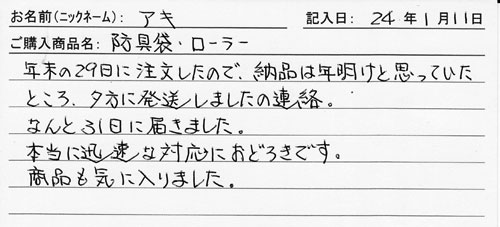 お名前(ニックネーム): アキ 記入日: 24年1月11日
ご購入商品名: 防具袋・ローラー
年末の29日に注文したので、納品は年明けと思っていた
ところ、夕方に発送しましたの連絡。
なんと31日に届きました。
本当に迅速な対応におどろきです。
商品も気に入りました。